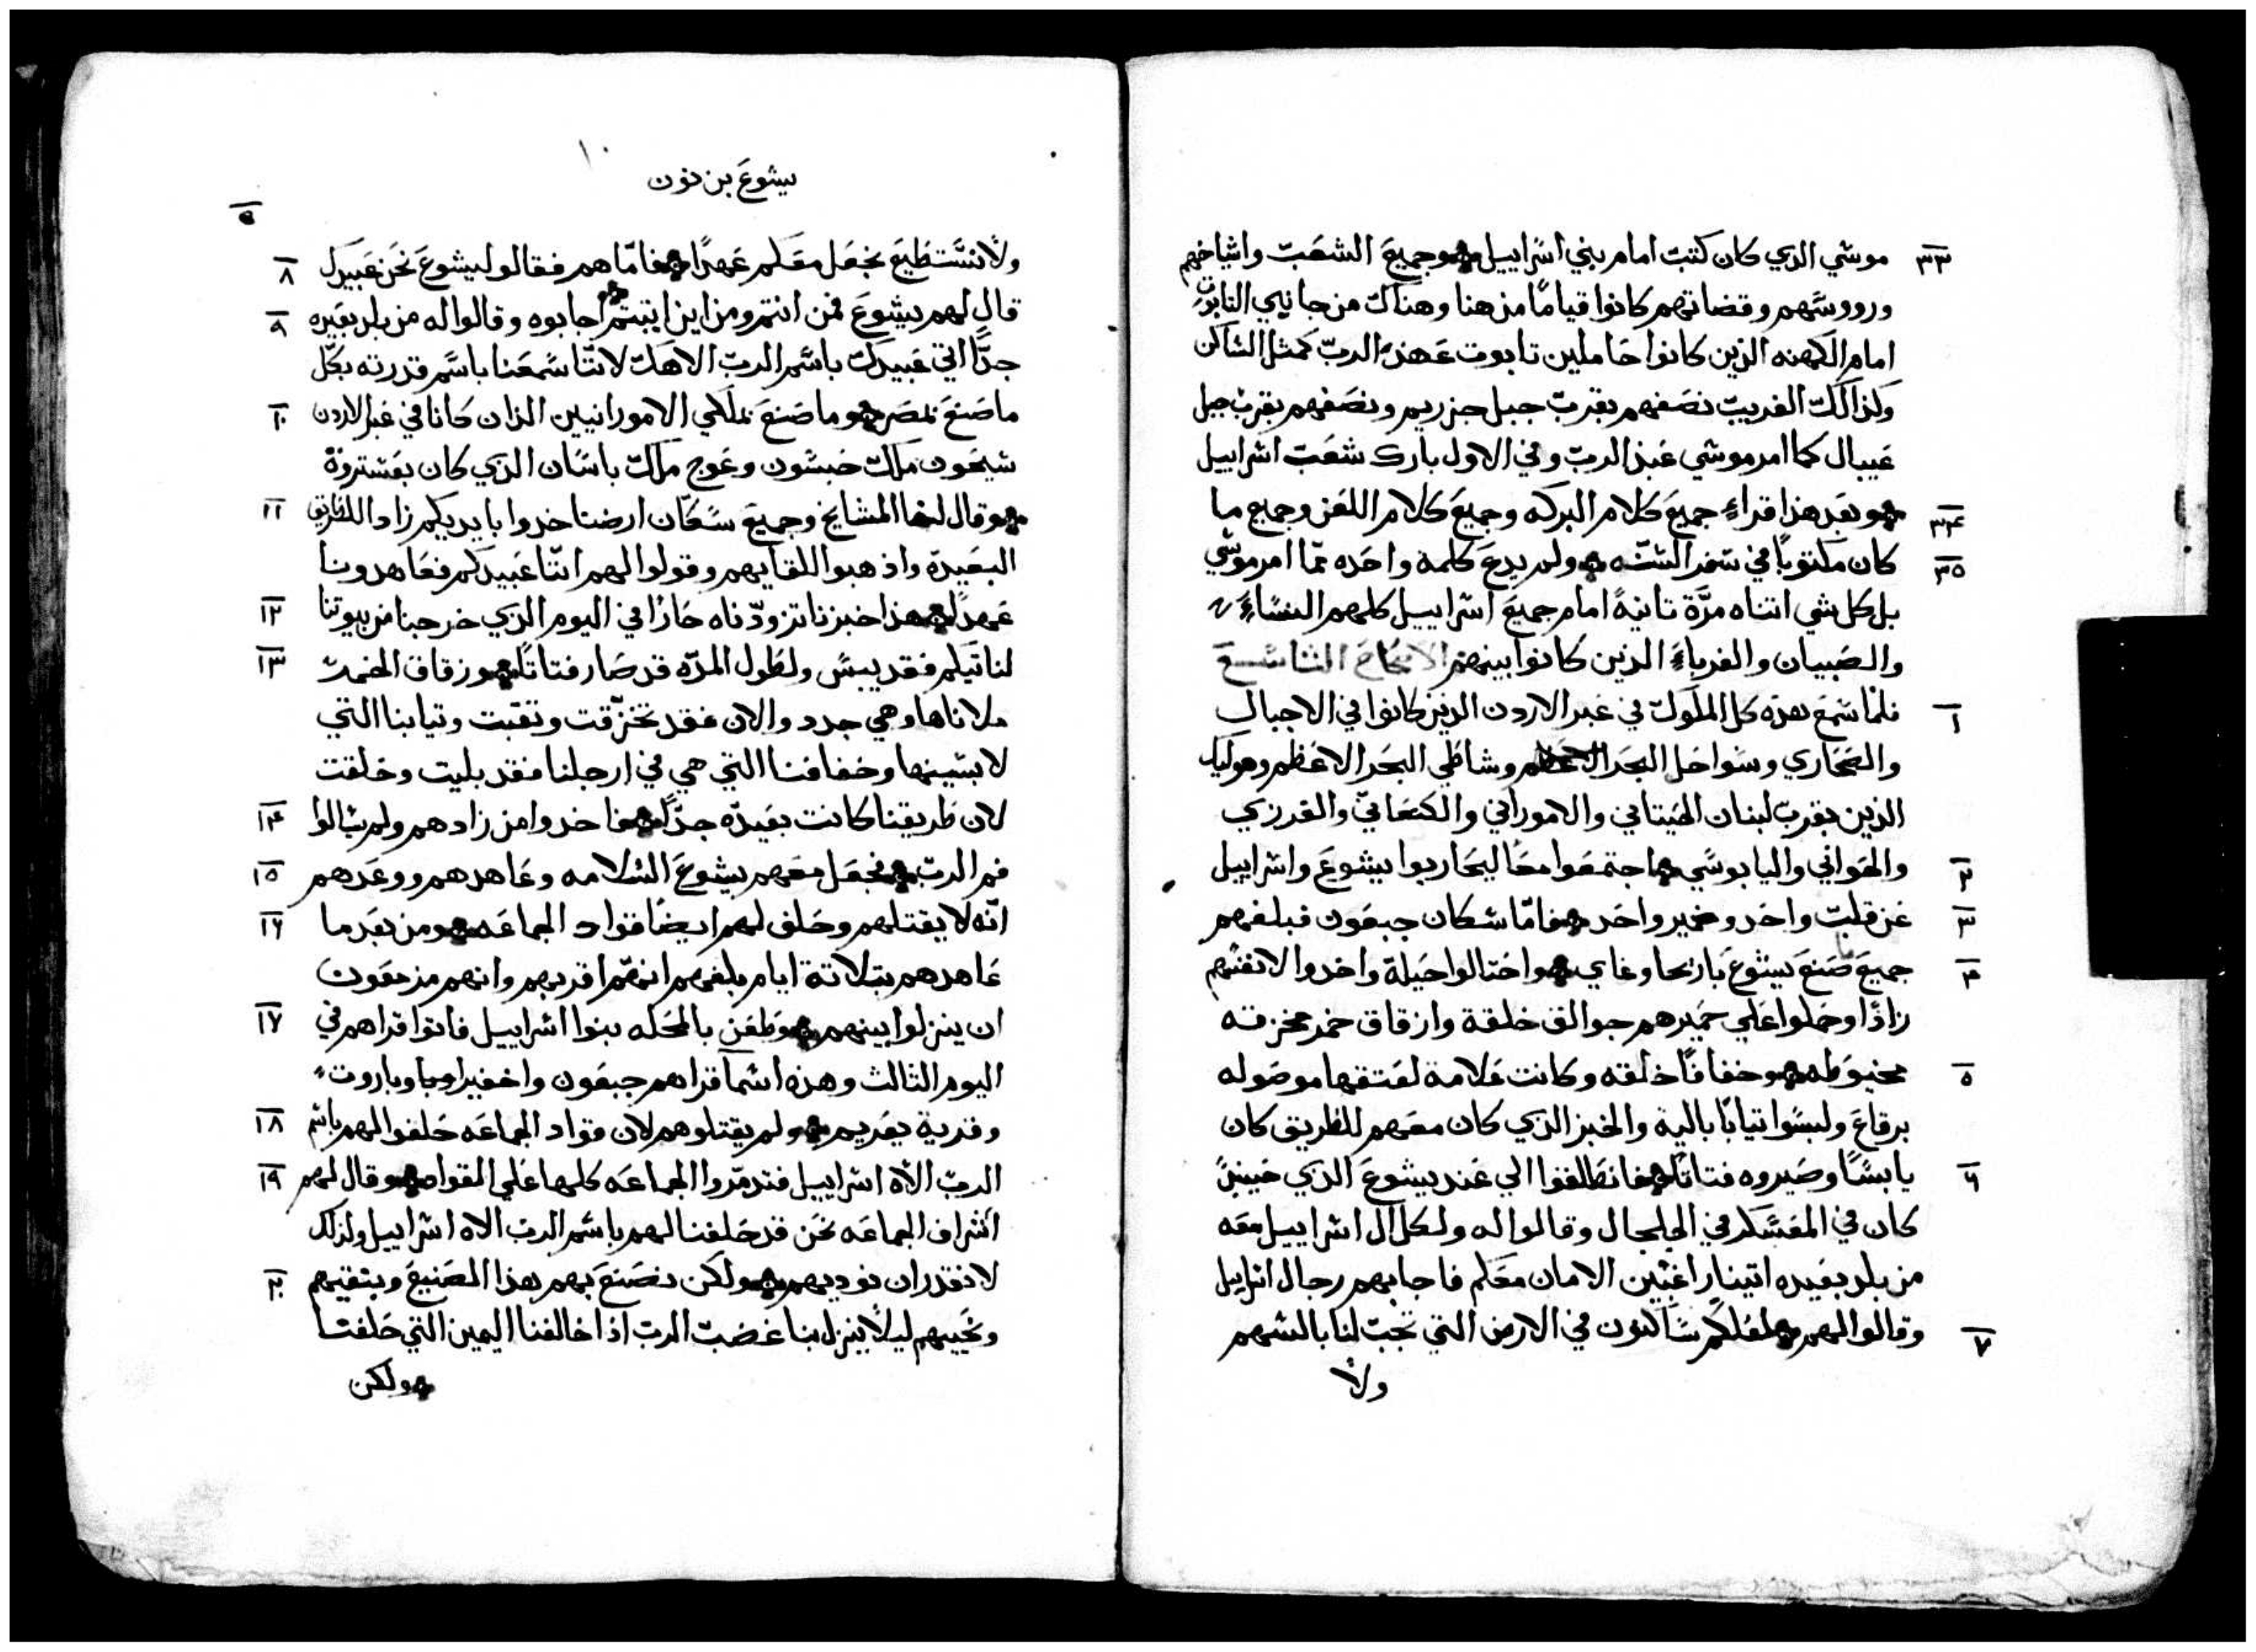 موسي الدي كان كتبت امام بني اسراييل وجميع الشعب واشياخهم
٣٣
ورووسهم وقضاتهم كانوا قيامًا من هنا وهناك من جانبي التابوت
امام الكهنه الذين كانوا حاملين تابوت عهد الرب كمثل الساكن
وكذالك الغريب نصفهم بقرب جبل جزريم ونصفهم بقرب جبل
عيبال كما امر موسي عبد الرب وفي الاول بارك شعب اسراييل
وبعد هذا قراء جميع كلام البركه وجميع كلام اللعن وجميع ما
٣٤
كان مكتوبًا في سفر السنّه ولم يدع كلمة واحده ممّا امر موسي
٣٥
بل كل شي اتناه مرّة تانيةً امام جميع اسراييل كلهم النساء
والصبيان والغرباء الذين كانوا بينهم الاصحاح التاسع
فلمّا سمع هذه كل الملوك في عبر الاردن الذين كانوا في الاجبال
١
والصحاري وسواحل البحر وشاطي البحر الاعظم وهوليك
الذين بقرب لبنان الحيتاني والاموراني والكنعاني والفرزي
والحواني واليابوسي اجتمعوا معًا ليحاربوا يشوع واسراييل
٢
عن قلب واحد وضمير واحد فامّا سكان جبعون فبلغهم
٣
جميع ما صنع يشوع باريحا وغاي واحتالوا حيلة واخدوا لانفسهم
٤
زادًا وحملوا علي حميرهم جوالق خلقة وازقاق خمر مخزقه
مخيوطه وخفافًا خلقه وكانت علامة لعتقها موصوله
٥
برقاع ولبسوا تيابًا بالية والخبز الذي كان معهم للطريق كان
يابسًا وصيروه فتاتًا فانطلقوا الي عند يشوع الذي حينيذٍ
٦
كان في المعسكر في الجلجال وقالوا له ولكل ال اسراييل معه
من بلد بعيده اتينا راغبين الامان معكم فاجابهم رجال اسراييل
وقالوا لهم لعلكم ساكنون في الارض التي تجب لنا بالسهم
٧
ولا
١٠
يشوع بن نون
٩
ولا نستطيع نجعل معكم عهدًا فامّا هم فقالوا ليشوع نحن عبيدك
٨
قال لهم يشوع فمن انتم ومن اين اتيتم اجابوه وقالوا له من بلد بعيره
٩
جدًّا اتي عبيدك باسم الرب الاهك لانّنا سمعنا باسم قدرته بكل
ما صنع بمصر وما صنع بملكي الامورانيين الذان كانا في عبر الاردن
١٠
شيحون ملك حبشون وعوج ملك باسان الذي كان بعشتروة
وقال لنا المشايخ وجميع سكان ارضنا خدوا بايديكم زاد الطريق
١١
البعيدة واذهبوا للقايهم وقولوا لهم انّنا عبيدكم فعاهدونا
عهدًا هذا خبزنا تزودّناه حارًا في اليوم الذي خرجنا من بيوتنا
١٢
لناتيكم فقد يبس ولطول المدّه قد صار فتاتًا وزقاق الخمر
١٣
ملاناها وهي جدد والان فقد تخزّقت وتقبت وتيابنا التي
لابسينها وخفافنا التي هي في ارجلنا فقد بليت وخلقت
لان طريقنا كانت بعيدّه جدًّا فاخدوا من زادهم ولم يسالوا
١٤
فم الرب فجعل معهم يشوع السلامه وعاهدهم ووعدهم
١٥
انّه لا يقتلهم وحلف لهم ايضًا قواد الجماعه ومن بعد ما
١٦
عاهدهم بتلاتة ايام بلغهم انهّم اقربهم وانهم مزمعون
ان ينزلوا بينهم وظعن بالمحله بنوا اسراييل فاتوا قراهم في
١٧
اليوم الثالث وهذه اسما قراهم جبعون واخفيرا وباروت
وقرية يعريم ولم يقتلوهم لان قواد الجماعه حلفوا لهم باسم
١٨
الرب الاه اسراييل فتدمّروا الجماعه كلها علي القواد وقال لهم
١٩
اشراف الجماعه نحن قد حلفنا لهم باسم الرب الاه اسراييل ولذلك
لا نقدر ان نوديهم ولكن نصنع بهم هذا الصنيع ونبقيهم
٢٠
ونحييهم ليلا ينزل بنا غضب الرب اذا خالفنا اليمين التي حلفنا
ولكن